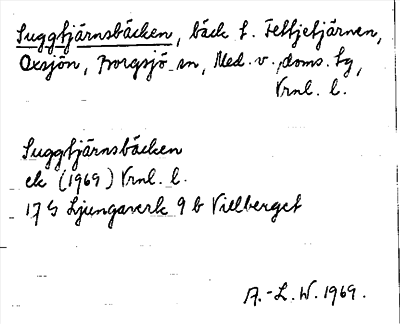 Suggtjärnsbäcken, bäck f. Fettjetjärnen,
Oxsjön, Borgsjö sn, Med. v. doms. tg,
Vrnl. l.
Suggtjärnsbäcken
ek (1969) Vrnl. l.
17 G Ljungaverk 9 b Villberget
A.-L. W. 1969.